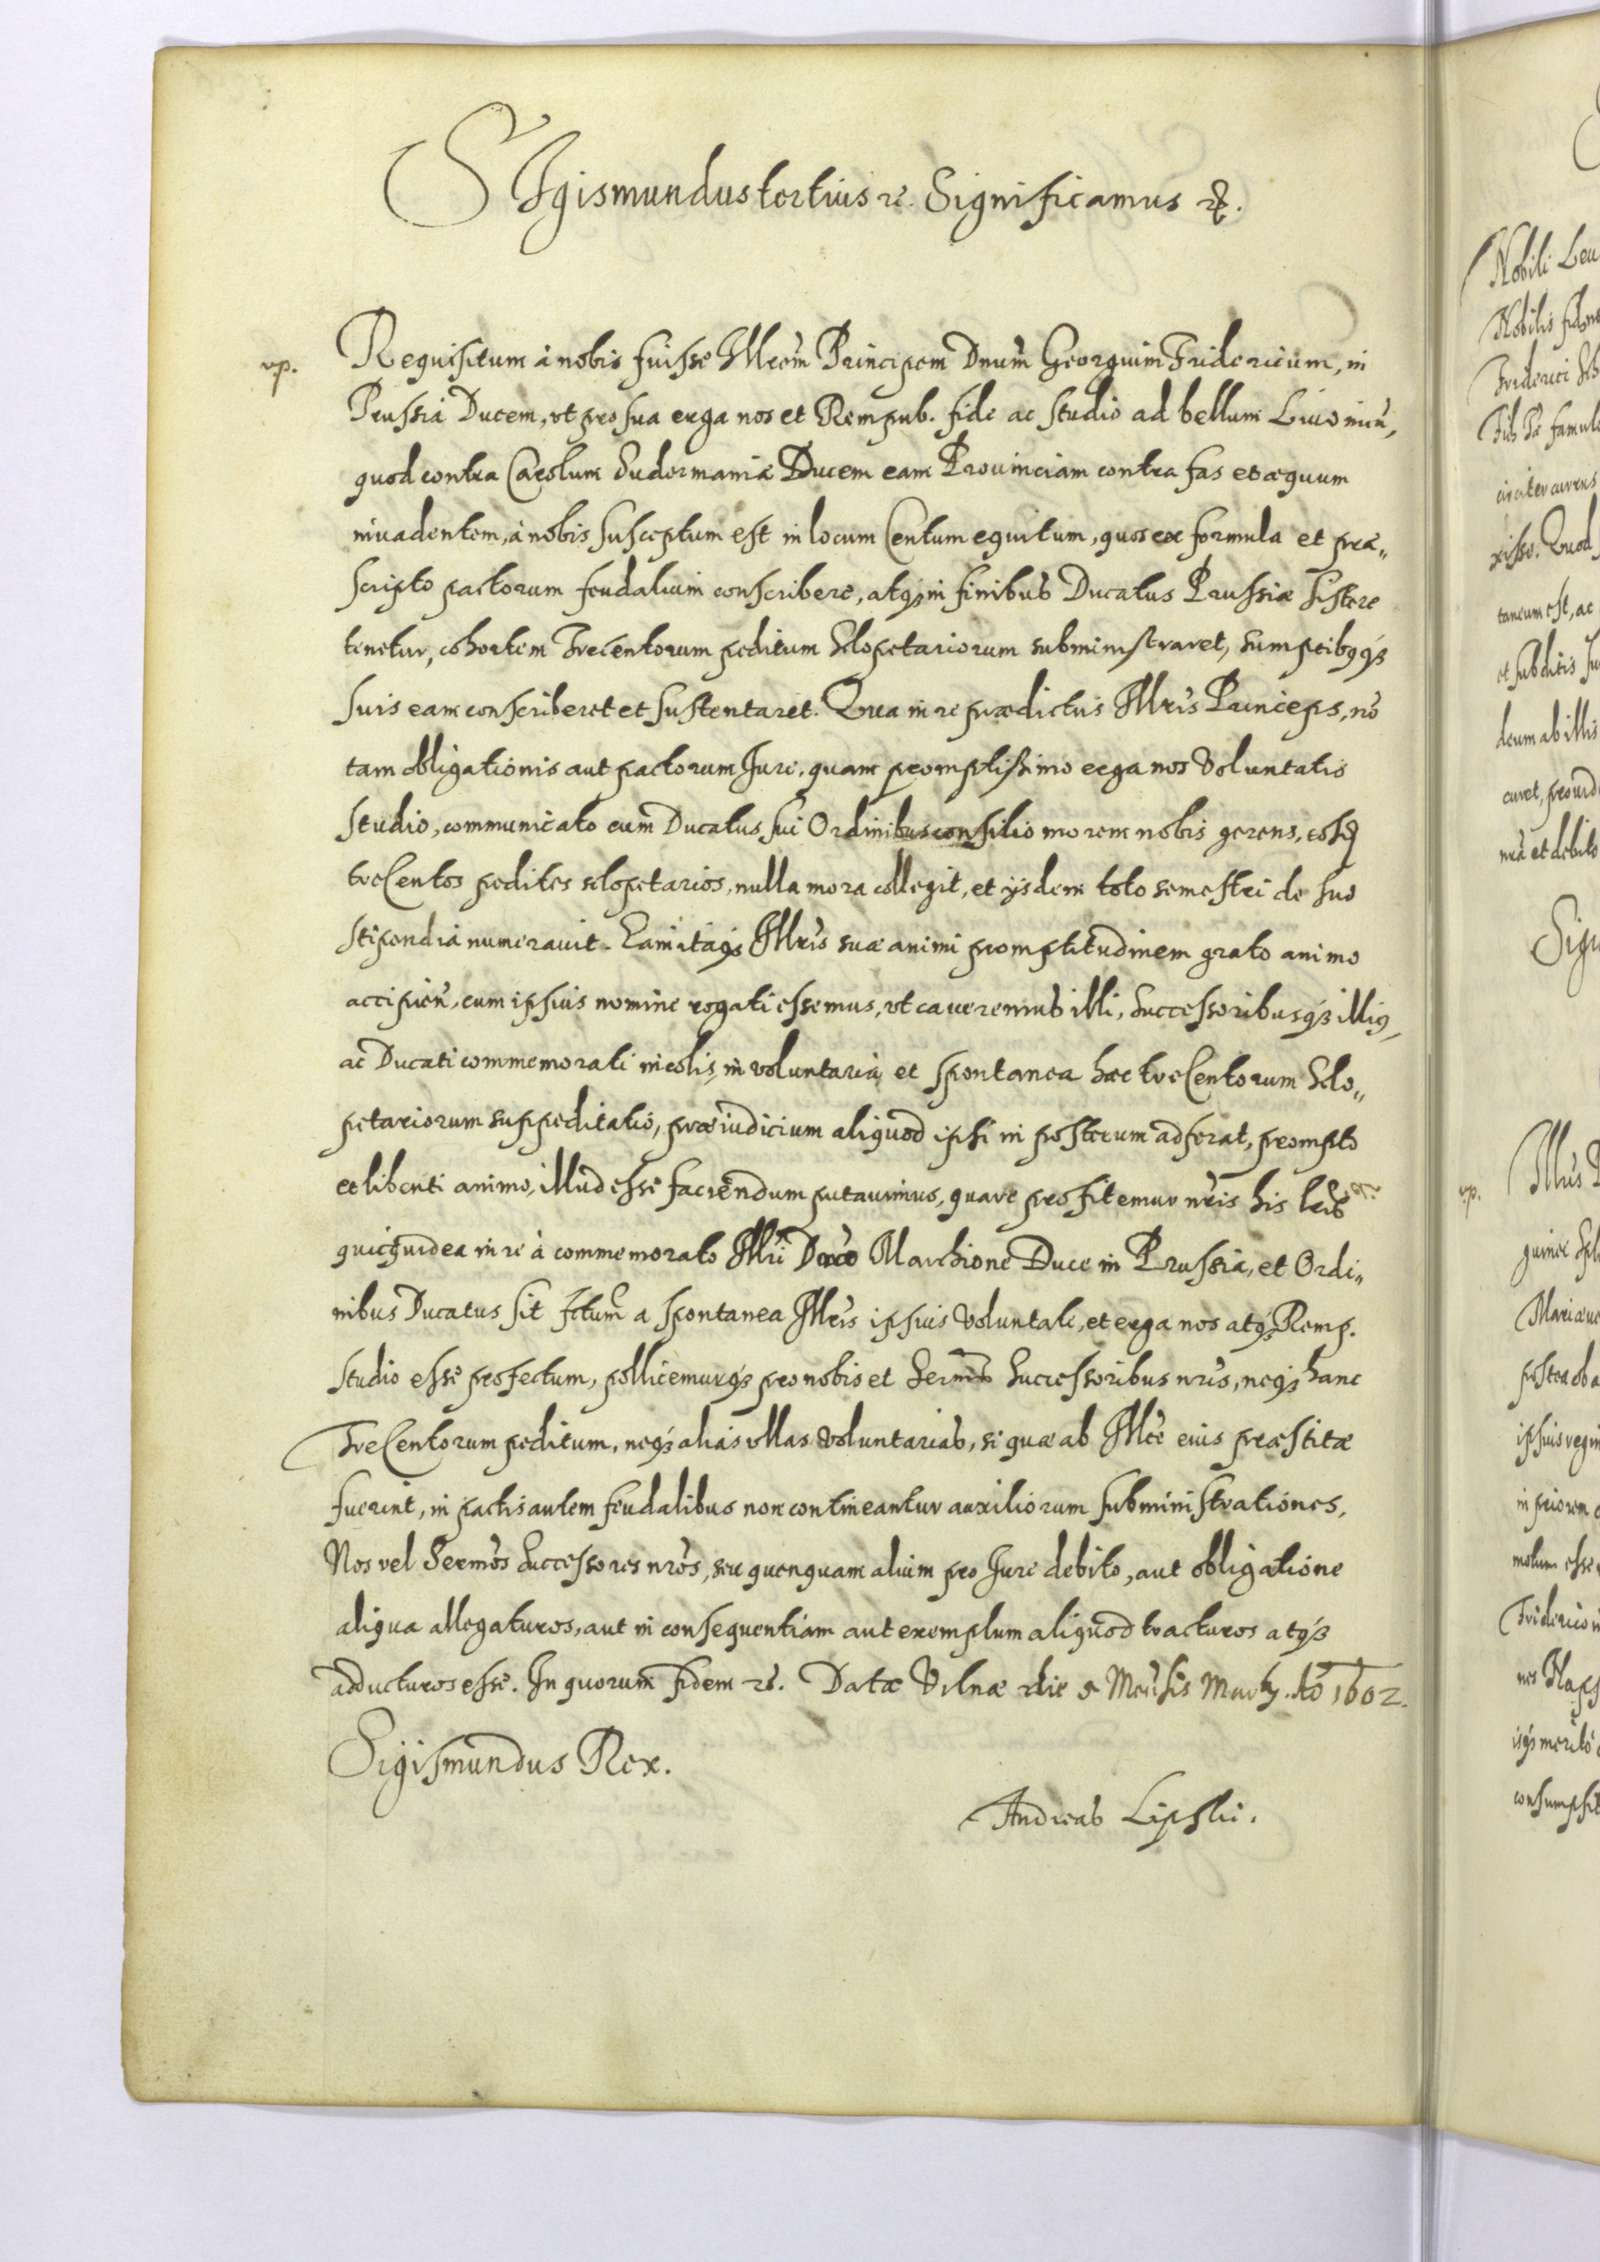 SIgismundus tertius etc. Significamus etc.
vp.
Requisitum à nobis fuisse Illrem̃ Principem Dnum̃ Georgium Fridericum, in
Prussia Ducem, vt pro sua erga nos et Rempub. fide ac studio ad bellum Liuonicũ,
quod contra Carolum Sudermaniæ Ducem eam Prouinciam contra fas et æquum
inuadentem, à nobis susceptum est in locum Centum equitum, quos ex formula et præ„
scripto pactorum feudalium conscribere, atqꝫ in finibus Ducatus Prussiæ sistere
tenetur, cohortem Trecentorum peditum Sclopetariorum subministraret, sumptibqꝫ
suis eam conscriberet et sustentaret. Qua in re prædictus Illris Princeps, nõ
tam obligationis aut pactorum Jure, quam promptissimo erga nos Voluntatis
studio, communicato cum Ducatus sui Ordinibus consilio morem nobis gerens, eosqꝫ
treCentos pedites sclopetarios, nulla mora collegit, et ijsdem toto semestri de suo
stipendia numerauit. Eam itaqꝫ Illris suæ animi promptitudinem grato animo
accipieñ, cum ipsius nomine rogati essemus, vt caueremus illi, Successoribusqꝫ illiꝯ,
ac Ducati commemorati incolis, in voluntaria et spontanea hac treCentorum Sclo„
petariorum suppeditatio, præiudicium aliquod ipsi in posterum adferat, prompto
et libenti animo, illud esse faciendum putauimus, quare profitemur nr̃is his lr̃is
quicquid ea in re à commemorato Illri Dno Marchione Duce in Prussia, et Ordi„
nibus Ducatus sit fctum̃ a spontanea Illris ipsius Voluntate, et erga nos atqꝫ Remp.
studio esse profectum, pollicemurqꝫ pro nobis et Sermis̃ Successoribus nr̃is, neqꝫ hanc
TreCentorum peditum, neqꝫ alias vllas Voluntarias, si quæ ab Illte eius præstitæ
fuerint, in pactis autem feudalibus non contineantur auxiliorum subministrationes,
Nos vel Sermõs Successores nr̃os, seu quenquam alium pro Jure debito, aut obligatione
aliqua allegaturos, aut in consequentiam aut exemplum aliquod tracturos atqꝫ
adducturos esse. In quorum fidem etc. Datæ Vilnæ die 5 Mensis Martij. Aõ 1602.
Sigismundus Rex.
Andreas Lipski.